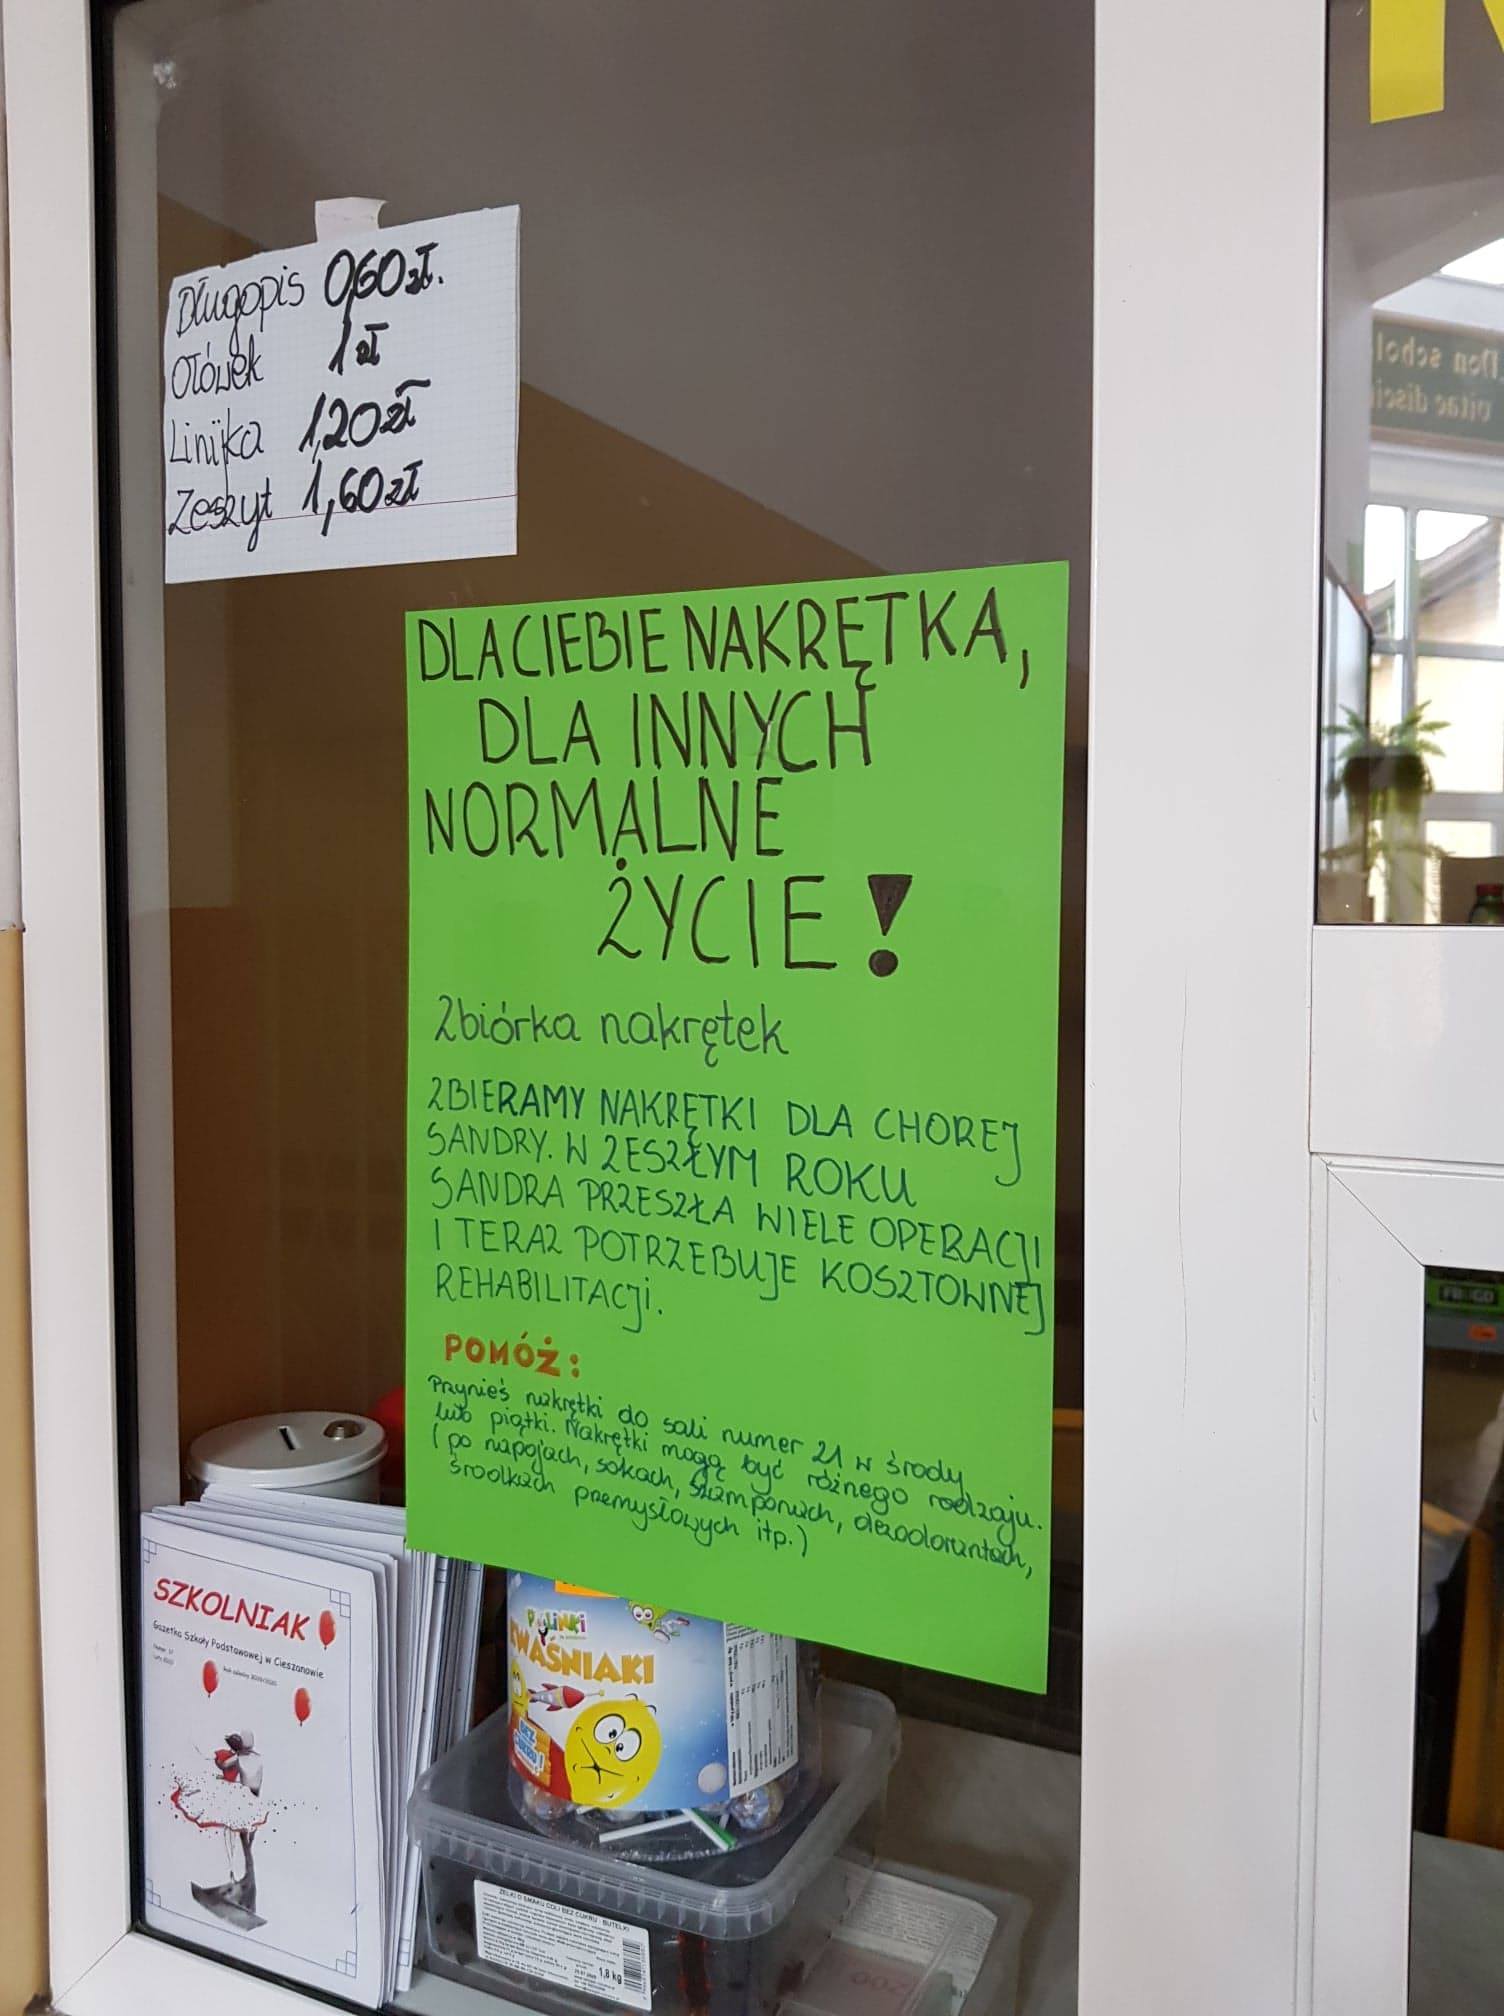 Długopis 0,60zł.
Ołówek 1zł
Linijka 1,20zł
Zeszyt 1,60zł
DLA CIEBIE NAKRĘTKA,
DLA INNYCH
NORMALNE
ŻYCIE!
Zbiórka nakrętek
ZBIERAMY NAKRĘTKI DLA CHOREJ
SANDRY. W ZESZŁYM ROKU
SANDRA PRZESZŁA WIELE OPERACJI
I TERAZ POTRZEBUJE KOSZTOWNEJ
REHABILITACJI.
POMÓŻ:
Przynieś nakrętki do sali numer 21 w środy
lub piątki. Nakrętki mogą być różnego rodzaju.
(po napojach, sokach, szamponach, dezodorantach,
środkach przemysłowych itp.)
SZKOLNIAK
Gazetka Szkoły Podstawowej w Cieszanowie
KWAŚNIAKI
BEZ
CUKRU!
ŻELKI O SMAKU COLI BEZ CUKRU - BUTELKI
1,8 kg
Non schol
vitae disci